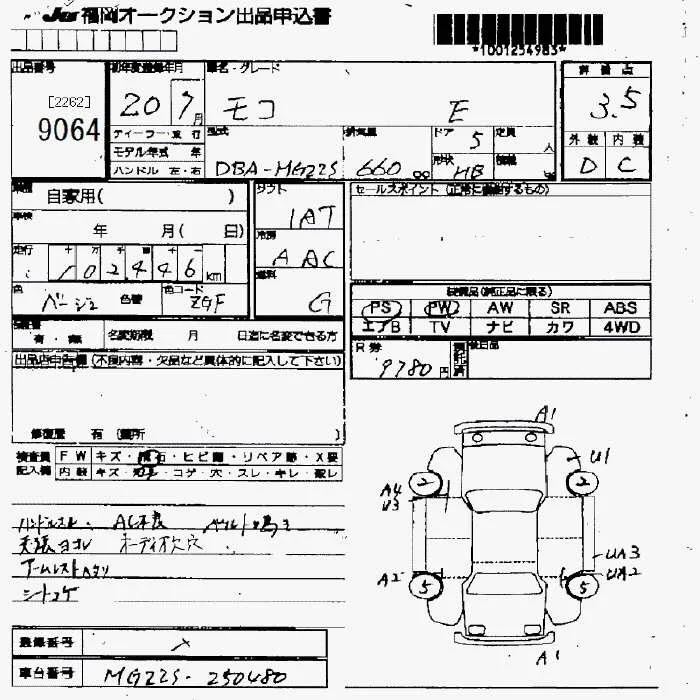 JU 福岡オークション出品申込書
*1001254983*
出品番号
[2262]
9064
初年度登録年月
20 7月
車名・グレード
モコ E
評価点
3.5
外装 内装
D C
ディーラー・並行
モデル年式 年
ハンドル 左・右
型式
DBA-MG22S
排気量
660 cc
ドア 5
形状
HB
定員 人
車歴
自家用( )
車検
年 月( 日)
走行
102446 km
色
ベージュ 色替
色コード
ZGF
シフト
IAT
冷房
AAC
燃料
G
セールスポイント (正常に機能するもの)
装備品(純正品に限る)
PS PW AW SR ABS
エアB TV ナビ カワ 4WD
有・無 名変期限 月 日迄に名変できる方
R券
9780円
後日品
出品店申告欄 (不良内容・欠品など具体的に記入して下さい)
修復歴 有 (箇所 )
検査員 FW キズ・飛石・ヒビ・リペア跡・X要
記入欄 内装 キズ・コゲ・穴・スレ・キレ・破レ
ハンドルスレ・ AC不良 ベルト鳴き
天張ヨゴレ オーディオ欠穴
シートコゲ
登録番号
車台番号
MG22S-250480
A1
U1
2 2
A4
U3
UA3
A2 UA2
5 5
A1